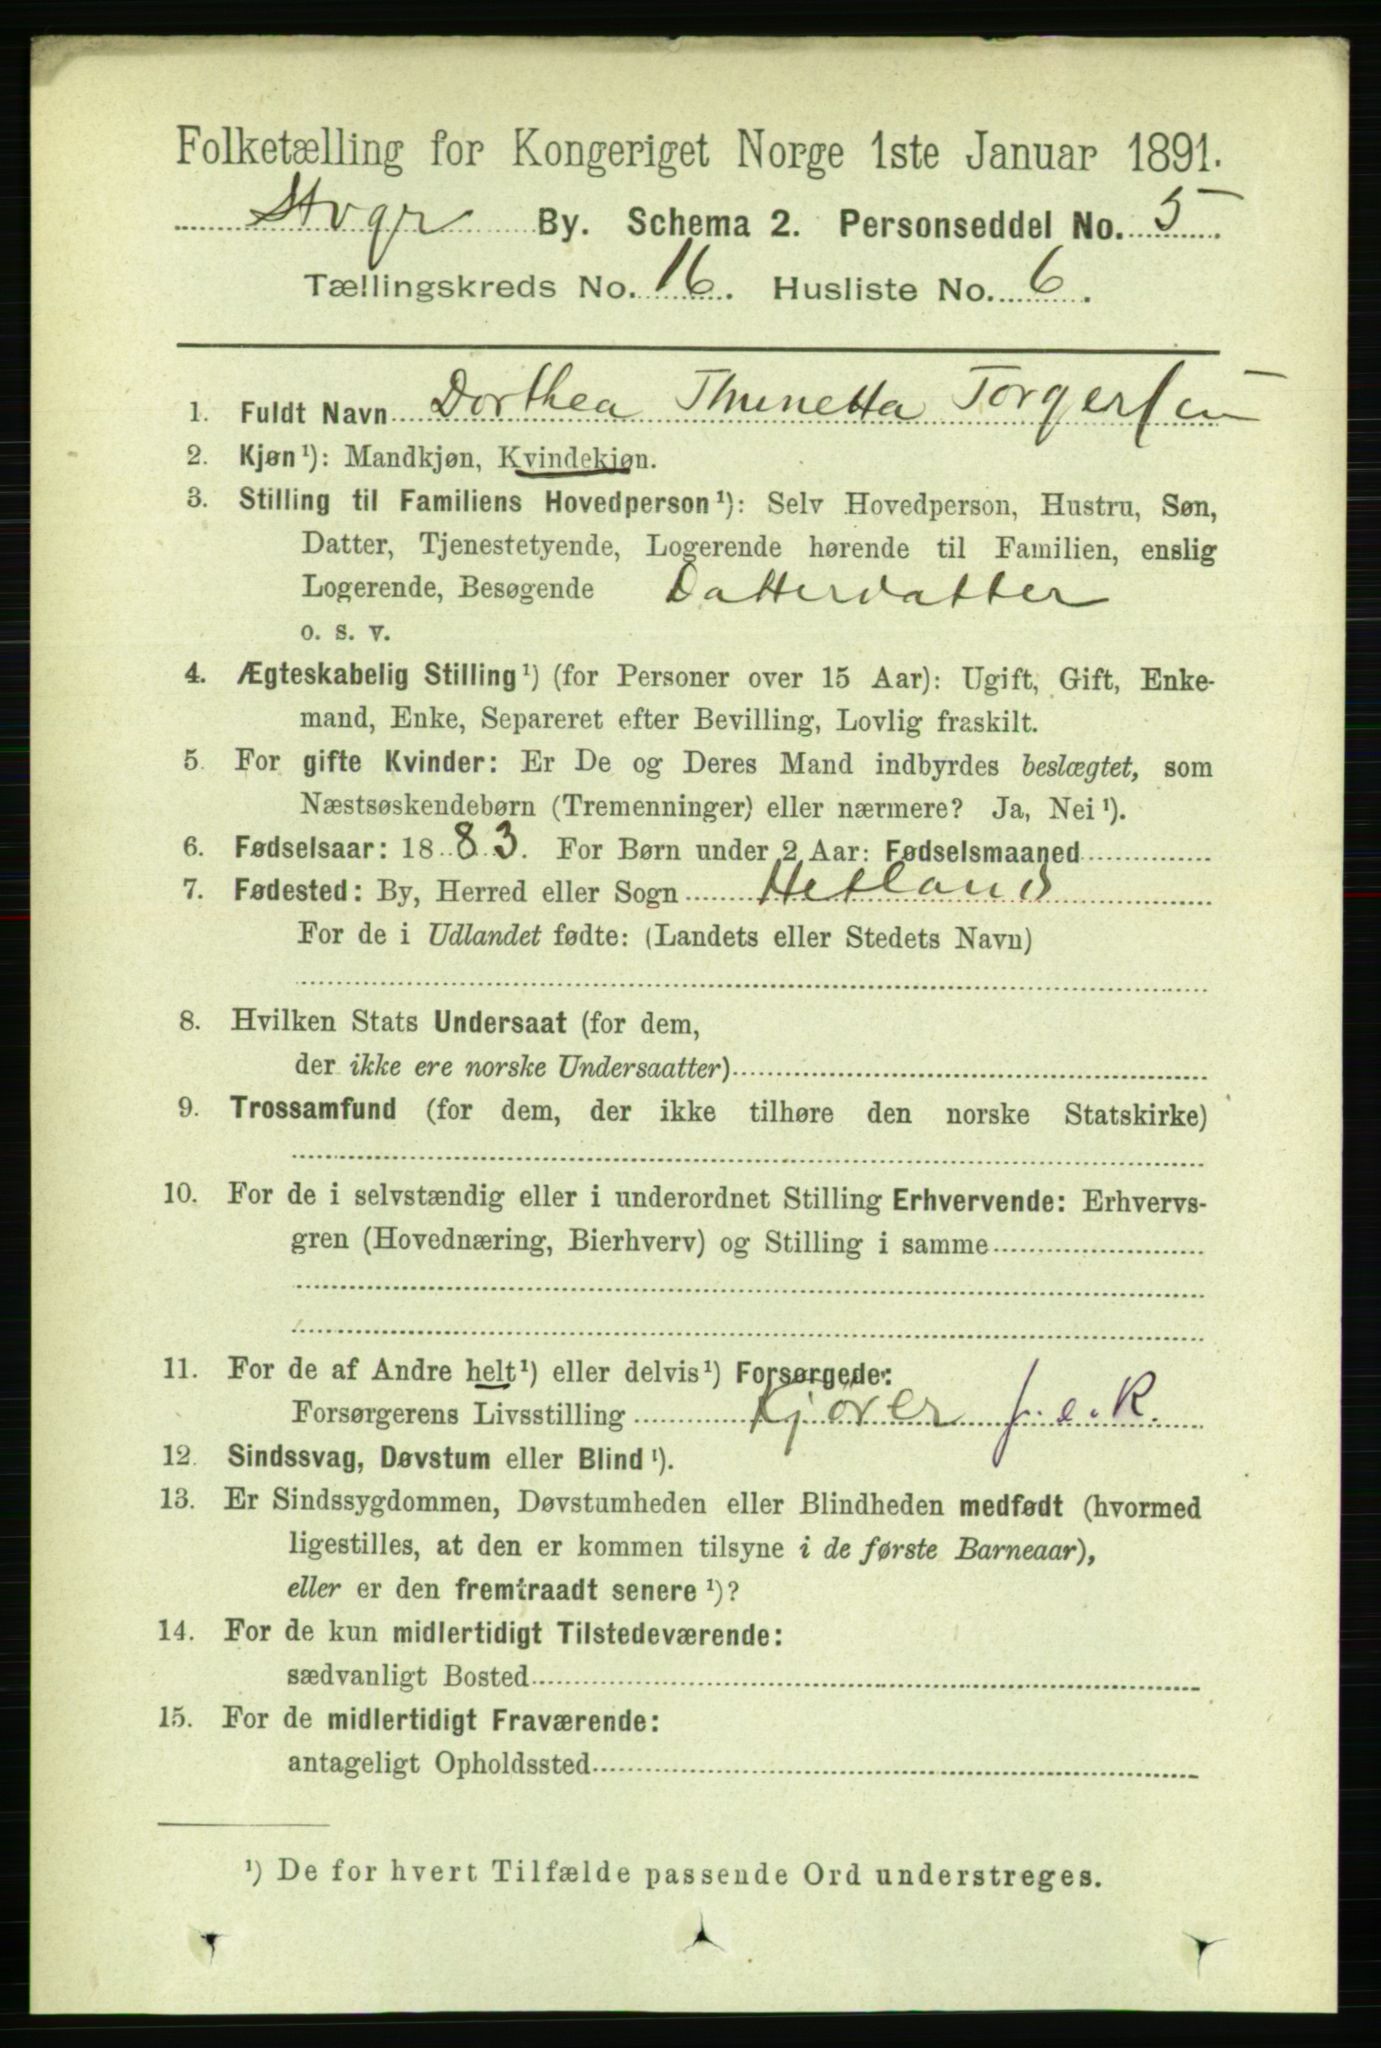 Folketælling for Kongeriget Norge 1ste Januar 1891.
Stvgr By. Schema 2. Personseddel No. 5
Tællingskreds No. 16. Husliste No. 6.
1. Fuldt Navn Dorthea Thunetta Torgersen
2. Kjøn ¹): Mandkjøn, Kvindekjøn.
3. Stilling til Familiens Hovedperson ¹): Selv Hovedperson, Hustru, Søn,
Datter, Tjenestetyende, Logerende hørende til Familien, enslig
Logerende, Besøgende Datterdatter
o. s. v.
4. Ægteskabelig Stilling ¹) (for Personer over 15 Aar): Ugift, Gift, Enke-
mand, Enke, Separeret efter Bevilling, Lovlig fraskilt.
5. For gifte Kvinder: Er De og Deres Mand indbyrdes beslægtet, som
Næstsøskendebørn (Tremenninger) eller nærmere? Ja, Nei ¹).
6. Fødselsaar: 1883. For Børn under 2 Aar: Fødselsmaaned
7. Fødested: By, Herred eller Sogn Hetland
For de i Udlandet fødte: (Landets eller Stedets Navn)
8. Hvilken Stats Undersaat (for dem,
der ikke ere norske Undersaatter)
9. Trossamfund (for dem, der ikke tilhøre den norske Statskirke)
10. For de i selvstændig eller i underordnet Stilling Erhvervende: Erhvervs-
gren (Hovednæring, Bierhverv) og Stilling i samme
11. For de af Andre helt ¹) eller delvis ¹) Forsørgede:
Forsørgerens Livsstilling Kjører f.e.R.
12. Sindssvag, Døvstum eller Blind ¹).
13. Er Sindssygdommen, Døvstumheden eller Blindheden medfødt (hvormed
ligestilles, at den er kommen tilsyne i de første Barneaar),
eller er den fremtraadt senere ¹)?
14. For de kun midlertidigt Tilstedeværende:
sædvanligt Bosted
15. For de midlertidigt Fraværende:
antageligt Opholdssted
¹) De for hvert Tilfælde passende Ord understreges.